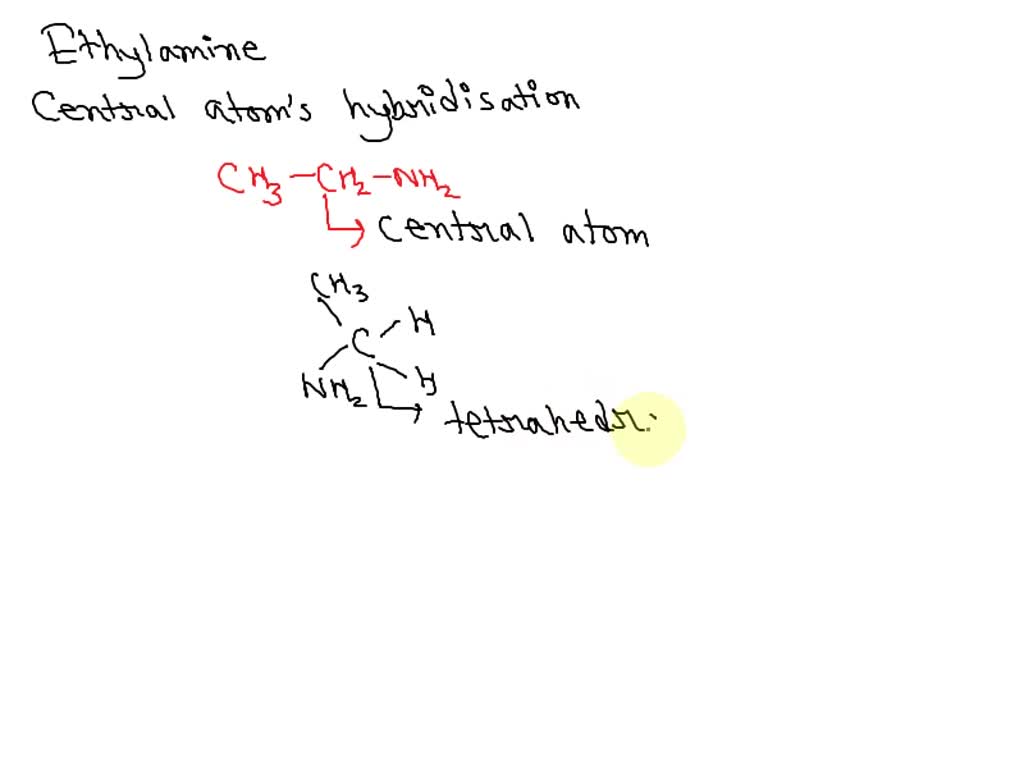 Ethylamine
Central atom's hybridisation
CH3-CH2-NH2
central atom
CH3
H
C
NH2
H
tetrahedr